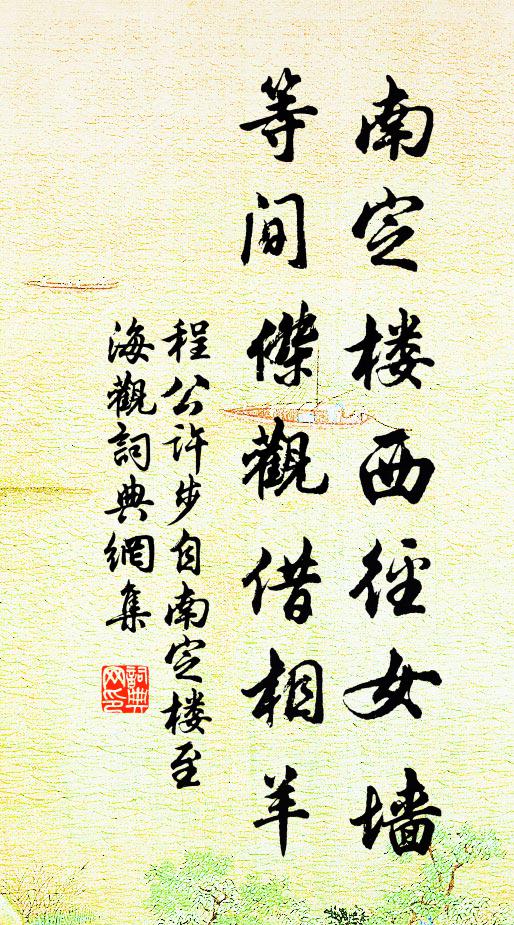 南定楼西径女墙
等间傑觀借相羊
程公许步自南定楼至
海觀詞典網集
詞典网印